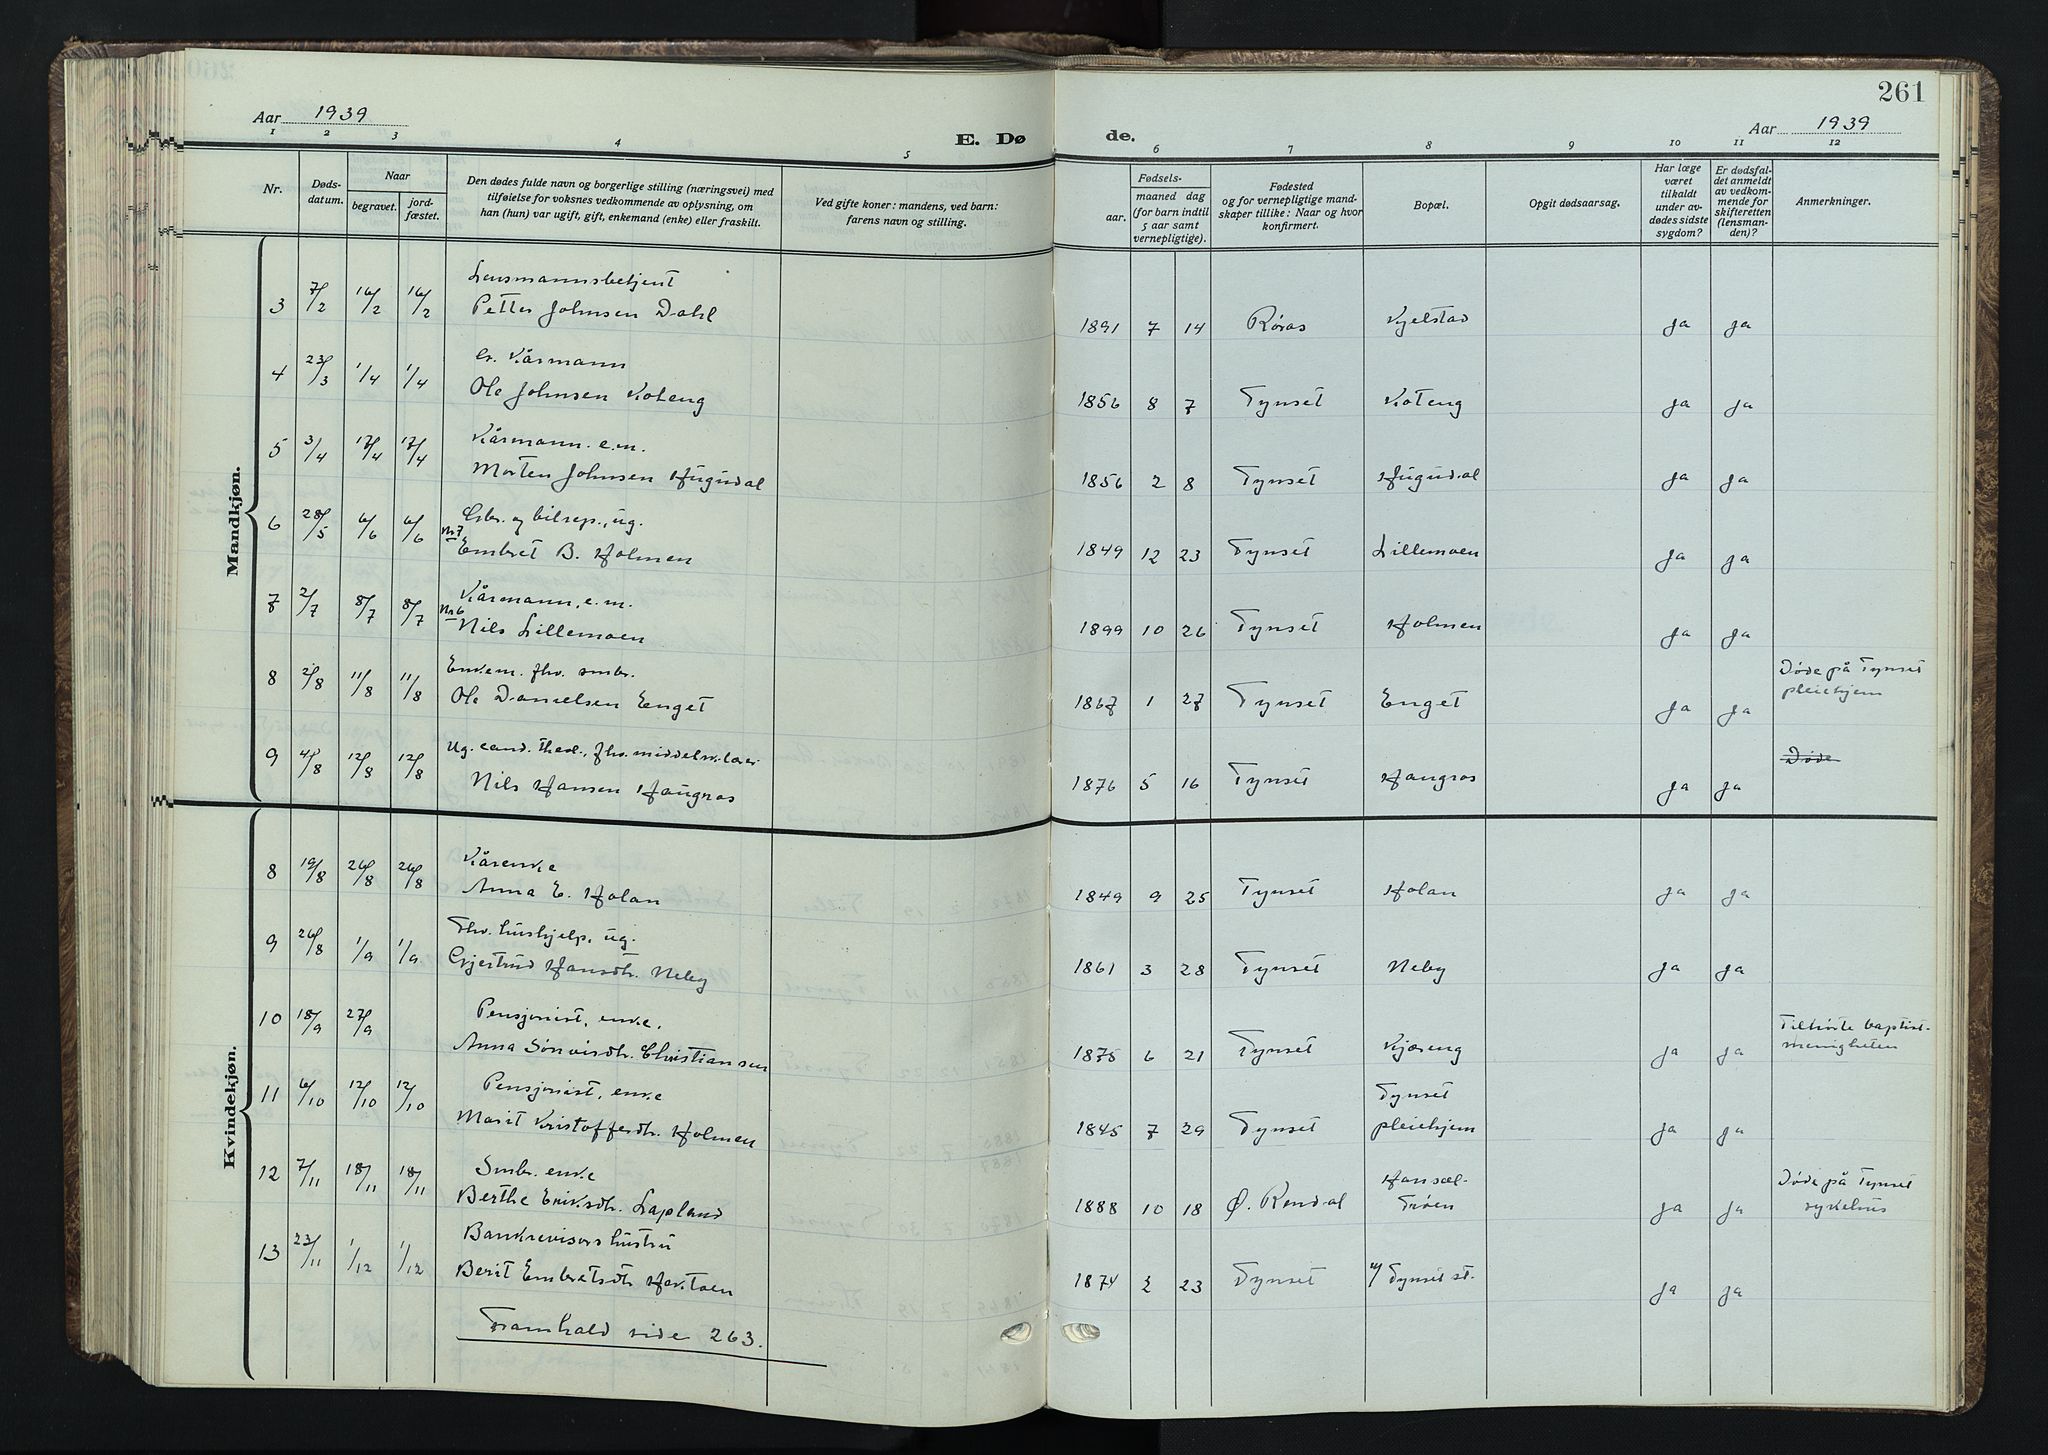 261
Aar 1939
E. Dø
de.
Aar 1939
1 2 3 4 5 6 7 8 9 10 11 12
Nr.
Døds-
datum.
Naar
begravet.
jord-
fæstet.
Den dødes fulde navn og borgerlige stilling (næringsvei) med
tilføielse for voksnes vedkommende av oplysning, om
han (hun) var ugift, gift, enkemand (enke) eller fraskilt.
Ved gifte koner: mandens, ved barn:
farens navn og stilling.
Fødsels-
aar.
maaned dag
(for barn indtil
5 aar samt
vernepligtige).
Fødested
og for vernepligtige mand-
skaper tillike: Naar og hvor
konfirmert.
Bopæl.
Opgit dødsaarsag.
Har læge
været
tilkaldt
under av-
dødes sidste
sygdom?
Er dødsfal-
det anmeldt
av vedkom-
mende for
skifteretten
(lensman-
den)?
Anmerkninger.
Mandkjøn.
Lensmannsbetjent
3 7/2 16/2 16/2 Petter Johnsen Dahl 1891 7 14 Røros Kjelstad Ja Ja
G. Kårmann
4 23/3 1/4 1/4 Ole Johnsen Koteng 1856 8 7 Tynset Koteng Ja Ja
Kårmann. e.m.
5 3/4 17/4 17/4 Morten Johnsen Hugudal 1856 2 8 Tynset Hugudal Ja Ja
Gbr. og bilrep., ug.
6 28/5 6/6 6/6 Nr 7 Embret B. Holmen 1849 12 23 Tynset Lillemoen Ja Ja
Kårmann, e.m.
7 2/7 8/7 8/7 Nr 6 Nils Lillemoen 1899 10 26 Tynset Holmen Ja Ja
Enkem. fhv. smbr.
8 2/8 11/8 11/8 Ole Danielsen Enget 1867 1 27 Tynset Enget Ja Ja Døde på Tynset
pleiehjem
Ug. cand. theol., fhv. middelsk.lærer
9 4/8 12/8 12/8 Nils Hansen Haugros 1876 5 16 Tynset Haugros Ja Ja Døde
Kvindekjøn.
Kårenke
8 19/8 26/8 26/8 Anna E. Holan 1849 9 25 Tynset Holan Ja Ja
Fhv. hushjelp, ug.
9 26/8 1/9 1/9 Gjertrud Hansdtr. Neby 1861 3 28 Tynset Neby Ja Ja
Pensjonist, enke.
10 18/9 27/9 Anna Sønvisdtr. Christiansen 1875 6 21 Tynset Kjæreng Ja Ja Tilhørte baptist-
menigheten
Pensjonist, enke
11 6/10 12/10 12/10 Marit Kristoffersdtr. Holmen 1845 7 29 Tynset Tynset
pleiehjem Ja Ja
Smbr. enke
12 7/11 18/11 18/11 Berthe Eriksdtr. Lapland 1888 10 18 Ø. Rendal Hansæl-
trøen Ja Ja Døde på Tynset
sykehus
Bankrevisors hustru
13 23/11 1/12 1/12 Berit Embretsdtr 1874 2 23 Tynset Tynset st. Ja Ja
Framhald side 263.